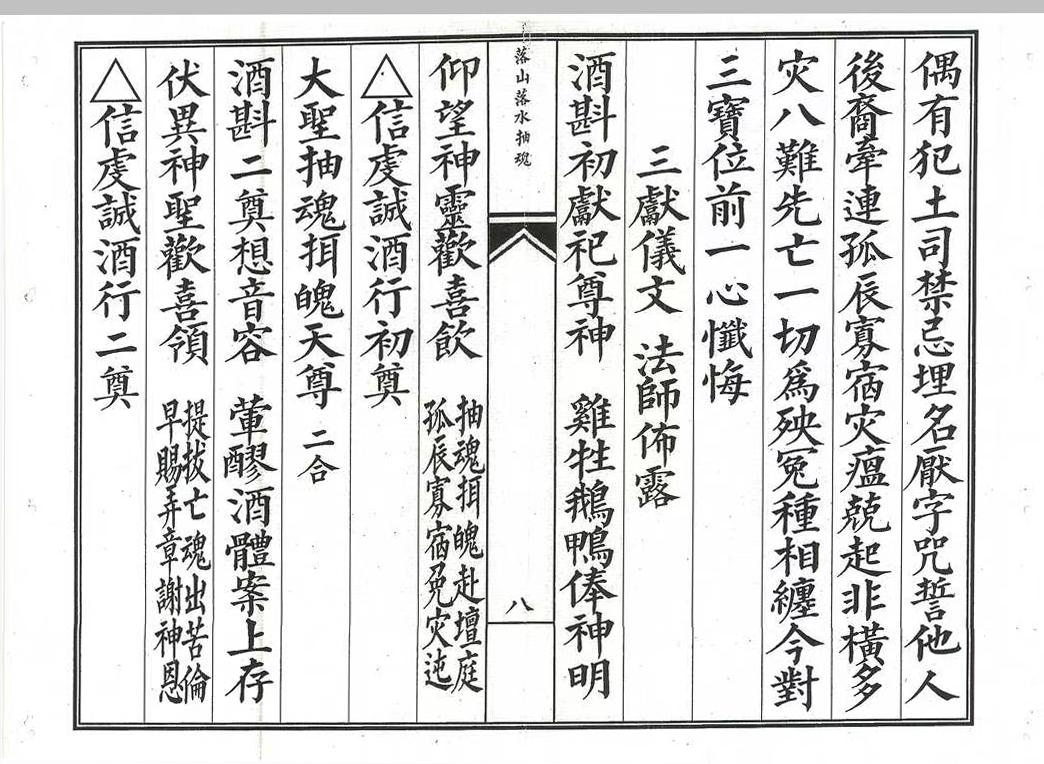 偶有犯土司禁忌埋名厭字咒誓他人
後裔牽連孤辰寡宿灾瘟兢起非橫多
灾八難先亡一切爲殃冤種相纏今對
三寶位前一心懺悔
三獻儀文 法師佈露
酒斟初獻祀尊神 雞牲鵝鴨俸神明
落山落水抽魂
八
仰望神靈歡喜飲 抽魂挕魄赴壇庭
孤辰寡宿免灾迍
△信虔誠酒行初奠
大聖抽魂挕魄天尊 二合
酒斟二奠想音容 葷醪酒體案上存
伏異神聖歡喜領 提拔亡魂出苦倫
早賜弄章謝神恩
△信虔誠酒行二奠